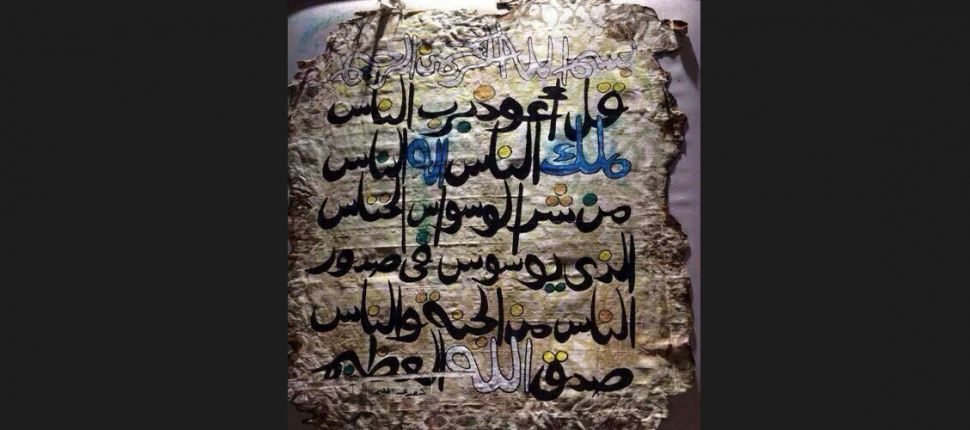 بسم الله الرحمن الرحيم
قل أعوذ برب الناس
ملك الناس اله الناس
من شر الوسواس الخناس
الذى يوسوس فى صدور
الناس من الجنة والناس
صدق الله العظيم